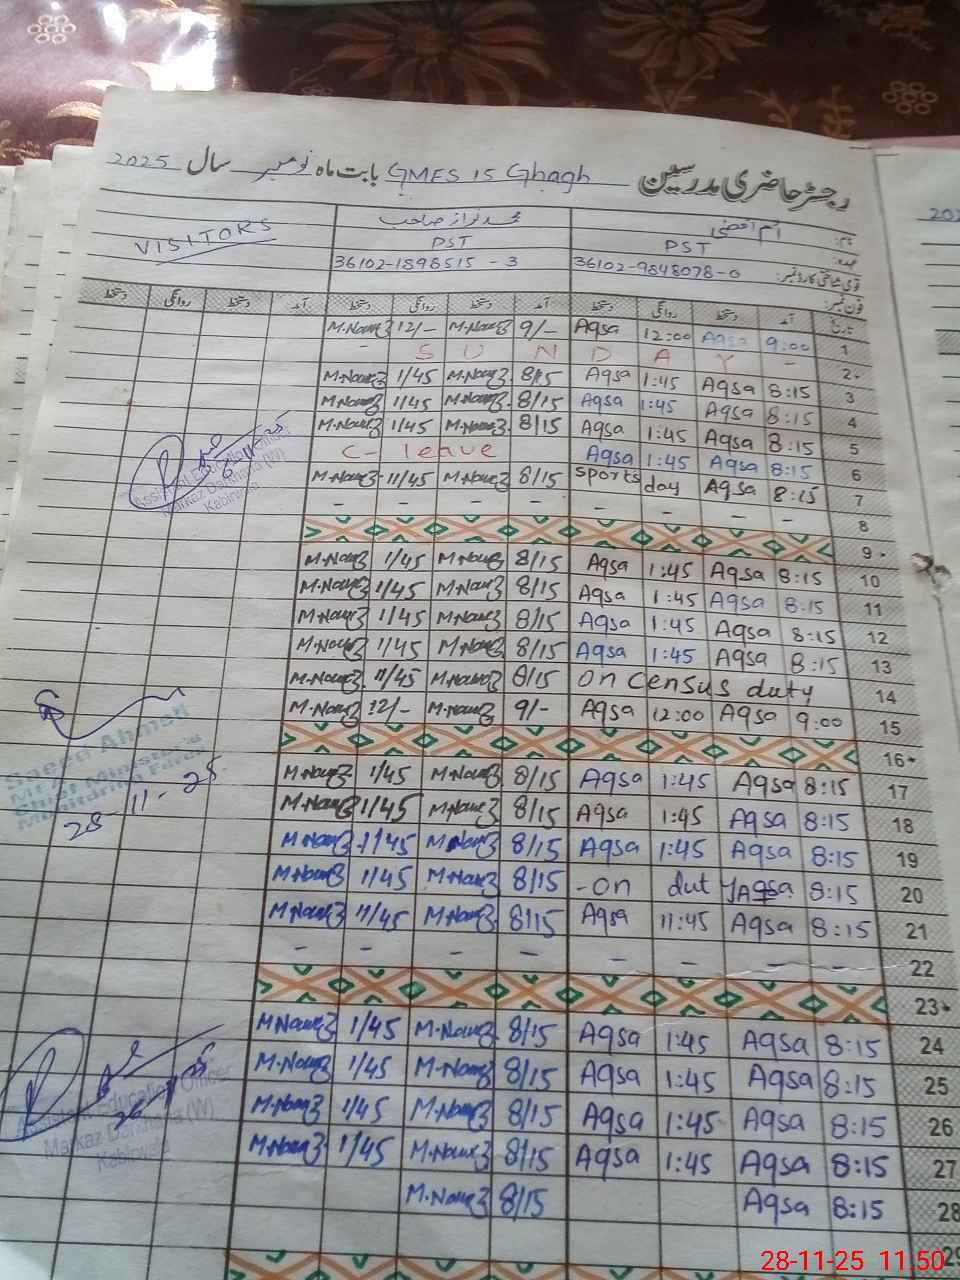 رجسٹر حاضری مدرسین GMES 15 Ghagh بابت ماہ نومبر سال 2025
VISITORS محمد نواز صاحب نام:
PST PST عہدہ:
36102-1898515-3 36102-9848078-0 قومی شناختی کارڈ نمبر:
فون نمبر:
دستخط روانگی دستخط آمد دستخط روانگی دستخط آمد دستخط روانگی دستخط آمد تاریخ
M.Nawaz 12/- M.Nawaz 9/- Aqsa 12:00 Aqsa 9:00 1
- S U N D A Y - 2
M.Nawaz 1/45 M.Nawaz 8/15 Aqsa 1:45 Aqsa 8:15 3
M.Nawaz 1/45 M.Nawaz 8/15 Aqsa 1:45 Aqsa 8:15 4
M.Nawaz 1/45 M.Nawaz 8/15 Aqsa 1:45 Aqsa 8:15 5
C- leave Aqsa 1:45 Aqsa 8:15 6
M.Nawaz 11/45 M.Nawaz 8/15 Sports day Aqsa 8:15 7
- - - - - - - - 8
9
M.Nawaz 1/45 M.Nawaz 8/15 Aqsa 1:45 Aqsa 8:15 10
M.Nawaz 1/45 M.Nawaz 8/15 Aqsa 1:45 Aqsa 8:15 11
M.Nawaz 1/45 M.Nawaz 8/15 Aqsa 1:45 Aqsa 8:15 12
M.Nawaz 1/45 M.Nawaz 8/15 Aqsa 1:45 Aqsa 8:15 13
M.Nawaz 11/45 M.Nawaz 8/15 on census duty 14
M.Nawaz 12/- M.Nawaz 9/- Aqsa 12:00 Aqsa 9:00 15
16
M.Nawaz 1/45 M.Nawaz 8/15 Aqsa 1:45 Aqsa 8:15 17
M.Nawaz 1/45 M.Nawaz 8/15 Aqsa 1:45 Aqsa 8:15 18
M.Nawaz 1/45 M.Nawaz 8/15 Aqsa 1:45 Aqsa 8:15 19
M.Nawaz 1/45 M.Nawaz 8/15 -on duty Aqsa 8:15 20
M.Nawaz 11/45 M.Nawaz 8/15 Aqsa 11:45 Aqsa 8:15 21
- - - - - - - - 22
23
M.Nawaz 1/45 M.Nawaz 8/15 Aqsa 1:45 Aqsa 8:15 24
M.Nawaz 1/45 M.Nawaz 8/15 Aqsa 1:45 Aqsa 8:15 25
M.Nawaz 1/45 M.Nawaz 8/15 Aqsa 1:45 Aqsa 8:15 26
M.Nawaz 1/45 M.Nawaz 8/15 Aqsa 1:45 Aqsa 8:15 27
M.Nawaz 8/15 Aqsa 8:15 28
29
Assistant Education Officer
Markaz Darkhana (W)
Kabirwala
Saeed Ahmed
Chief Minister's
Monitoring Force
28-11-25
Assistant Education Officer
Markaz Darkhana (W)
Kabirwala
28-11-25 11.50